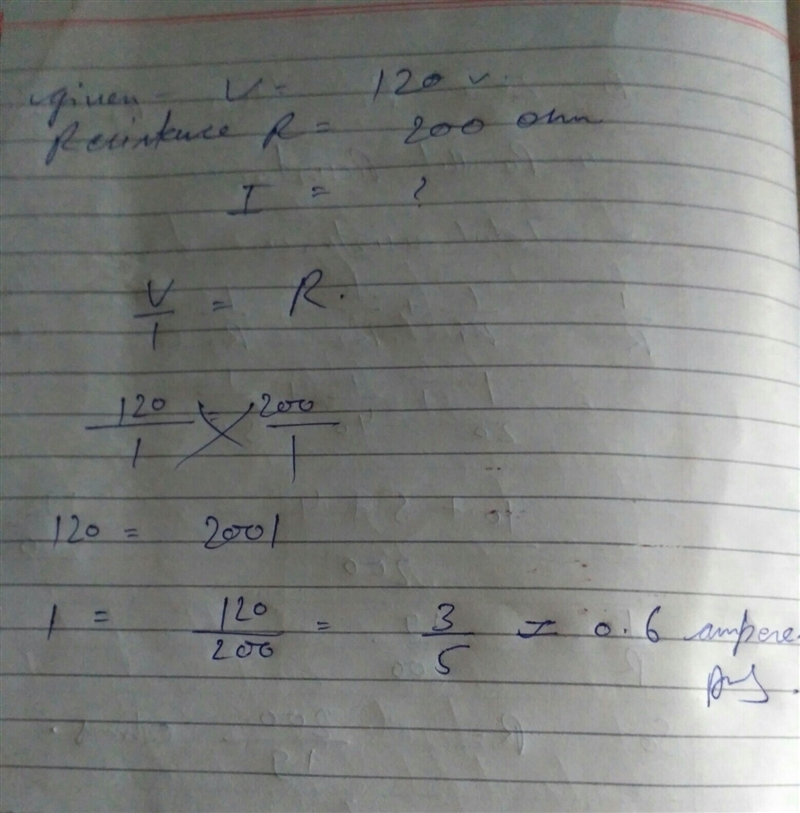 given - V = 120 v.
Resistance R = 200 ohm
I = ?
V/I = R.
120/I = 200/1
120 = 200I
I = 120/200 = 3/5 = 0.6 ampere.
Ans.